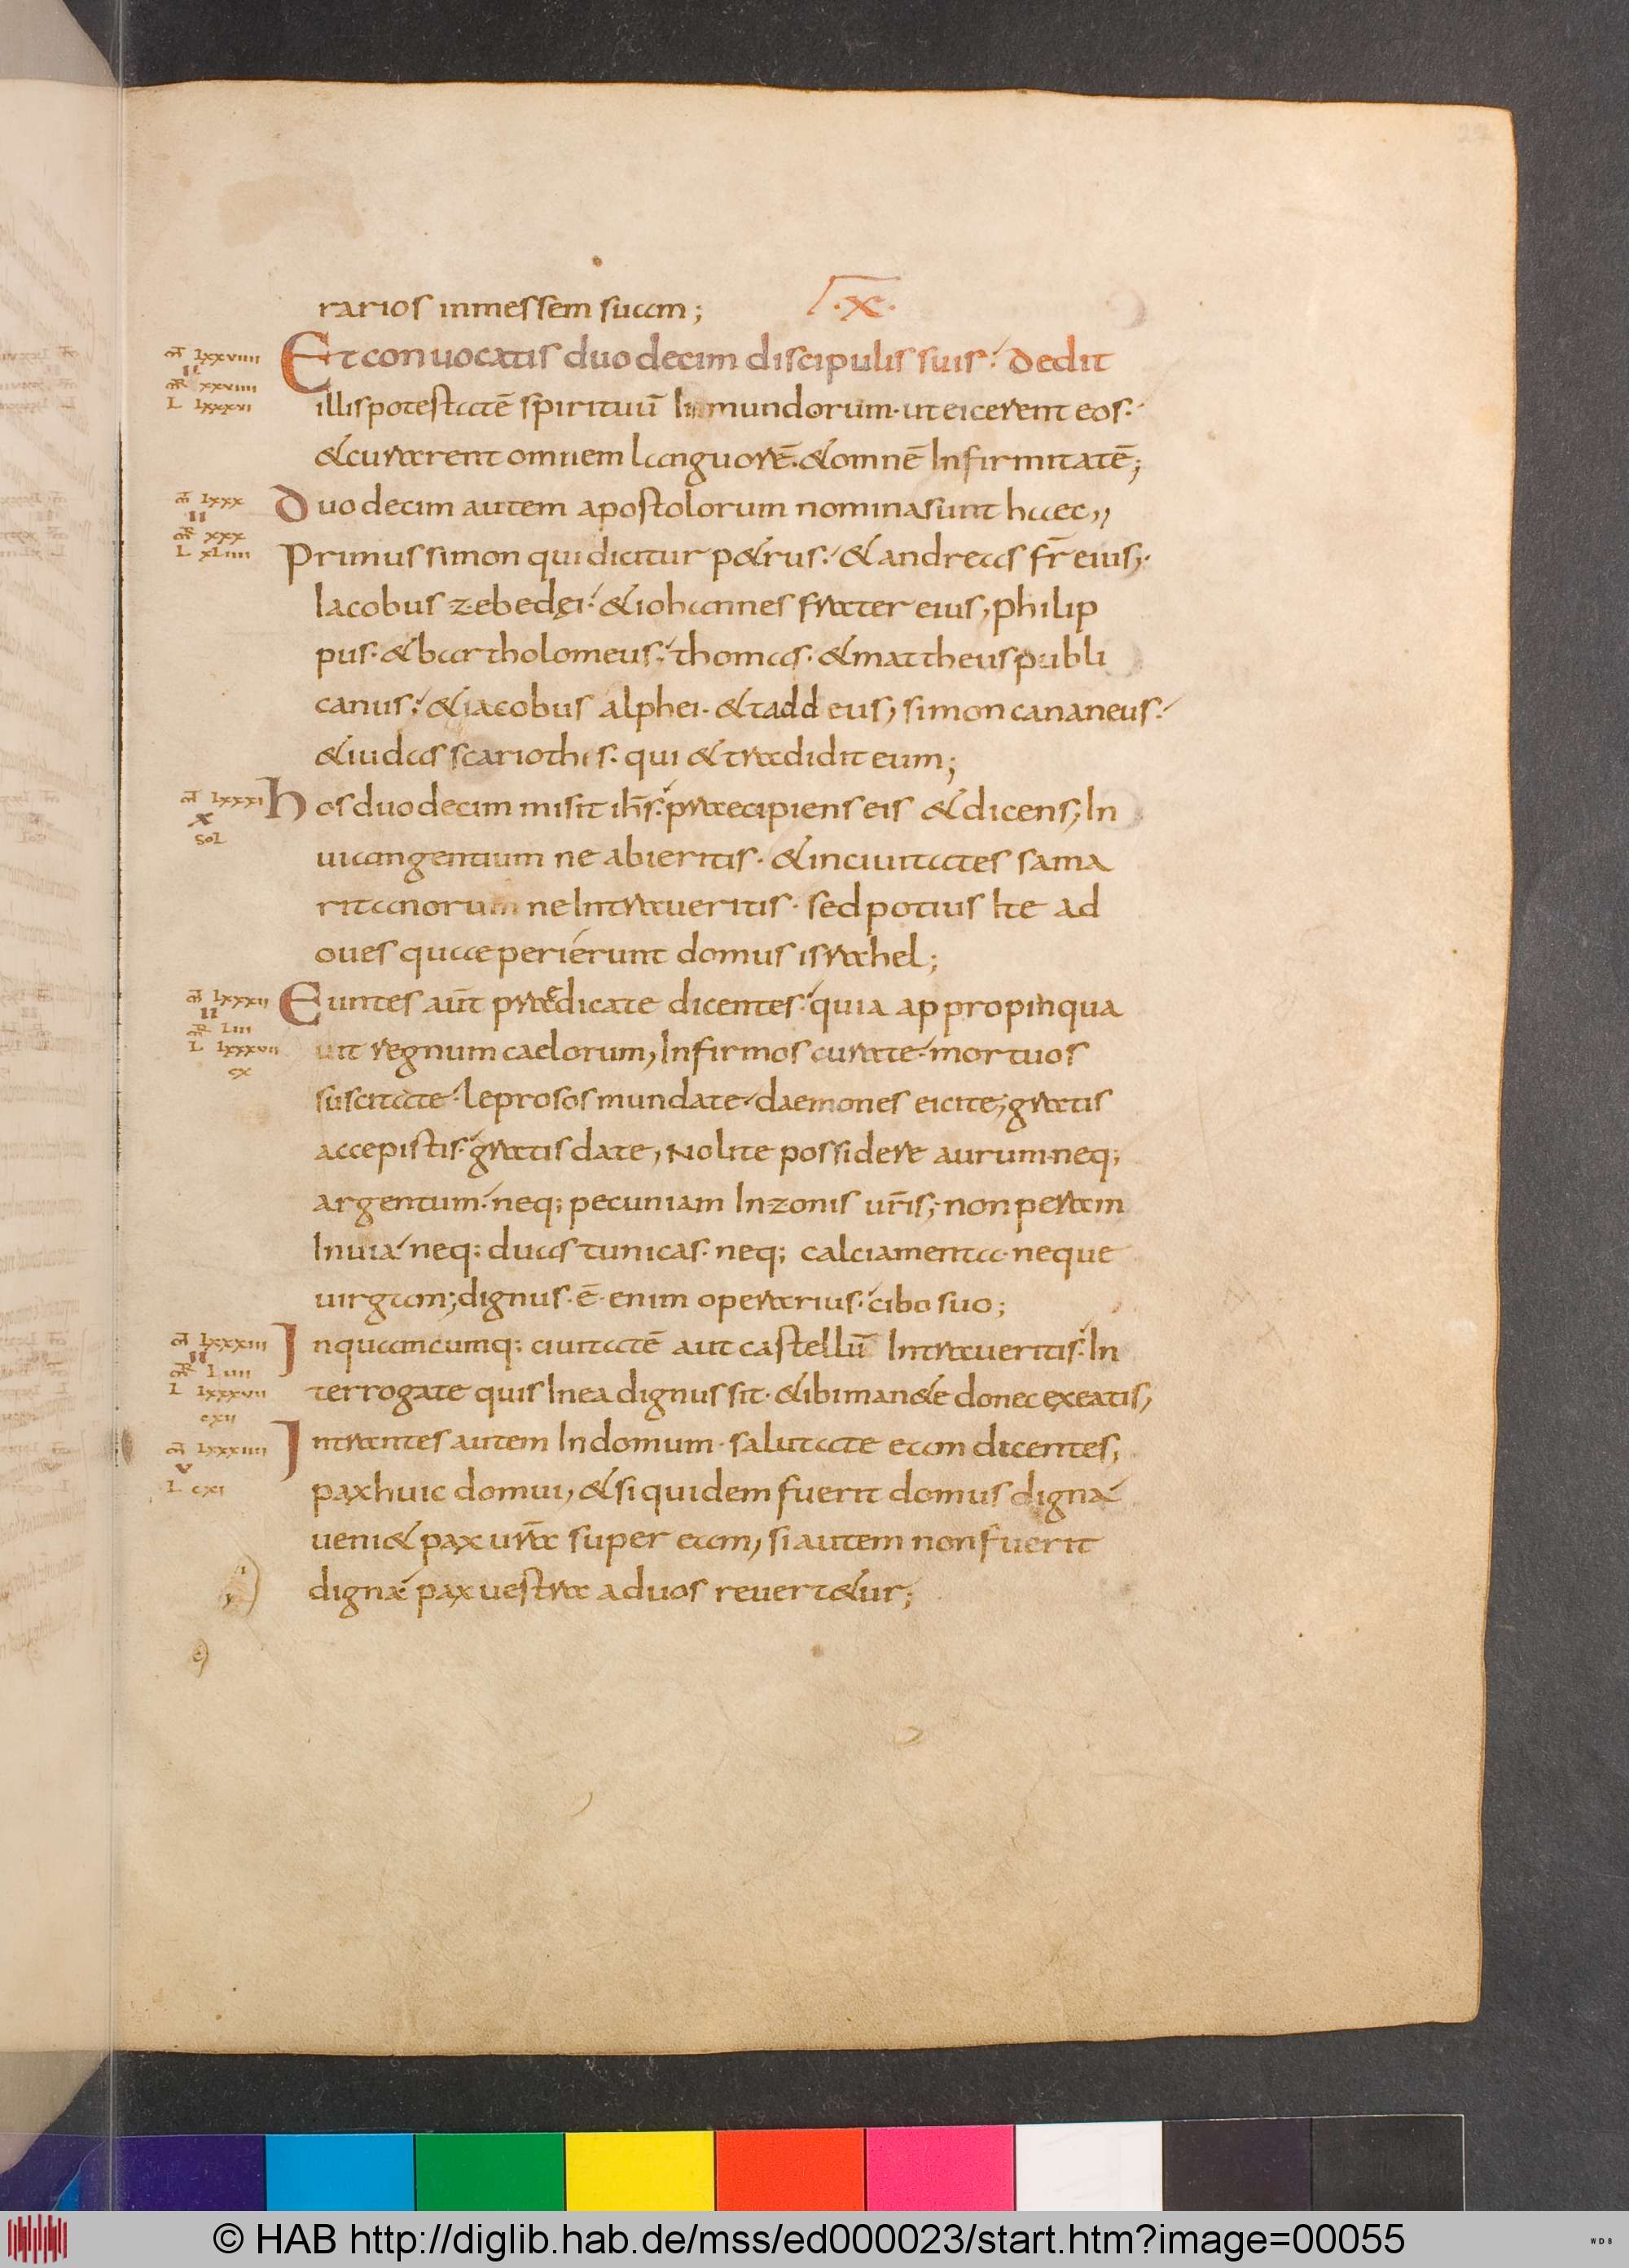 22
rarios inmessem suam; ·X·
Et conuocatis duodecim discipulis suis· dedit
illis potestatē spirituū Inmundorum· ut eicerent eos·
& curarent omnem languorē· & omnē Infirmitatē;
Duodecim autem apostolorum nomina sunt haec,,
Primus simon qui dicitur p&rus· & andreas fr̄ eius;
Iacobus zebedęi· & iohannes frater eius, philip
pus· & bartholomeus· thomas· & mattheus publi
canus; & iacobus alphei· & taddeus, simon cananeus·
& iudas scariothis· qui & tradidit eum;
Hos duodecim misit ih̄s· praecipiens eis & dicens; In
uiam gentium ne abieritis· & in ciuitates sama
ritanorum ne Intraueritis· sed potius Ite ad
oues quae perierunt domus israhel;
Euntes aūt praedicate dicentes· quia appropinqua
uit regnum caelorum, Infirmos curate· mortuos
suscitate· leprosos mundate· daemones eicite; gratis
accepistis· gratis date, Nolite possidere aurum· neq;
argentum· neq; pecuniam In zonis ur̄is; non peram
In uia· neq; duas tunicas· neq; calciamenta· neque
uirgam; dignus· ē· enim operarius· cibo suo;
In quamcumq; ciuitatē aut castellū Intraueritis· In
terrogate quis In ea dignus sit· & ibi man&e donec exeatis,
Intrantes autem In domum· salutate eam dicentes;
pax huic domui, & siquidem fuerit domus digna·
ueni& pax ur̄a super eam, si autem non fuerit
digna· pax uestra ad uos reuert&ur;
m̄ lxxviiii
II
m̄R xxviiii
L lxxxvi
m̄ lxxx
II
m̄R xxx
L xLiiii
m̄ lxxxi
X
soL
m̄ lxxxii
II
m̄R Liii
L lxxxvii
cx
m̄ lxxxiii
II
m̄R Liiii
L lxxxvii
cxii
m̄ lxxxiiii
V
L cxi
© HAB http://diglib.hab.de/mss/ed000023/start.htm?image=00055
WDB